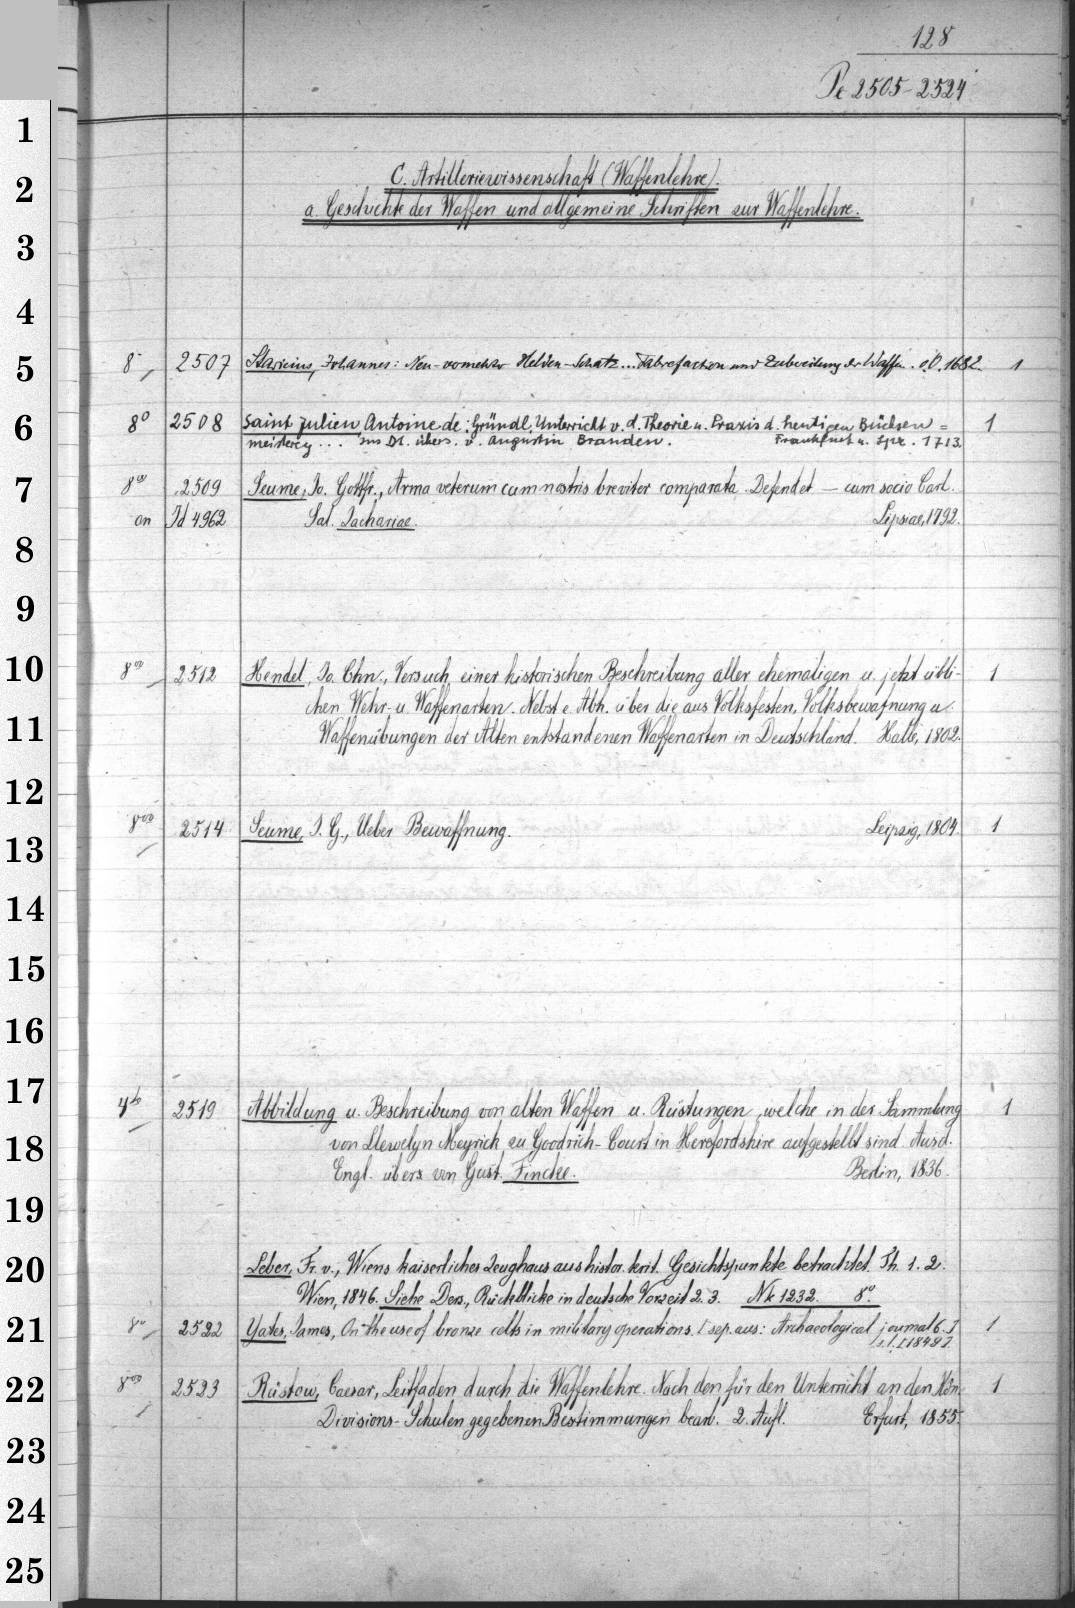 128
Pe 2505-2524
C. Artilleriewissenschaft (Waffenlehre).
a. Geschichte der Waffen und allgemeine Schriften zur Waffenlehre.
2507 Staricius, Johannes: Neu-vormehrter Helden-Schatz... Fabrefaction und Zubereitung der Waffen. o.O. 1682. 1
8° 2508 Saint Julien, Antoine de: Gründl. Unterricht v. d. Theorie u. Praxis d. heutigen Büchsen=
meisterey... ins Dt. übers. v. Augustin Branden. Frankfurt u. Lpz. 1713. 1
8vo 2509 Seume, Jo. Gottfr., Arma veterum cum nostris breviter comparata. Defendet — cum socio Carl.
an Id 4962 Sal. Zachariae. Lipsiae, 1792.
8vo 2512 Hendel, Jo. Chn., Versuch einer historischen Beschreibung aller ehemaligen u. jetzt übli- 1
chen Wehr- u. Waffenarten. Nebst e. Abh. über die aus Volksfesten, Volksbewafnung u.
Waffenübungen der Alten entstandenen Waffenarten in Deutschland. Halle, 1802.
8vo 2514 Seume, J. G., Ueber Bewaffnung. Leipzig, 1804. 1
4to 2519 Abbildung u. Beschreibung von alten Waffen u. Rüstungen, welche in der Sammlung 1
von Llewelyn Meyrick zu Goodrich-Court in Herefordshire aufgestellt sind. Aus d.
Engl. übers von Gust. Fincke. Berlin, 1836.
Leber, Fr. v., Wiens kaiserliches Zeughaus aus histor. krit. Gesichtspunkte betrachtet. Th. 1. 2.
Wien, 1846. Siehe Ders., Rückblicke in deutsche Vorzeit 2. 3. Nk 1232. 8°.
8vo 2522 Yates, James, On the use of bronze celts in military operations. [sep. aus: Archaeological journal 6.] 1
s. l. [1849].
8vo 2523 Rüstow, Caesar, Leitfaden durch die Waffenlehre. Nach den für den Unterricht an den Kön. 1
Divisions-Schulen gegebenen Bestimmungen bearb. 2. Aufl. Erfurt, 1855.
1
2
3
4
5
6
7
8
9
10
11
12
13
14
15
16
17
18
19
20
21
22
23
24
25